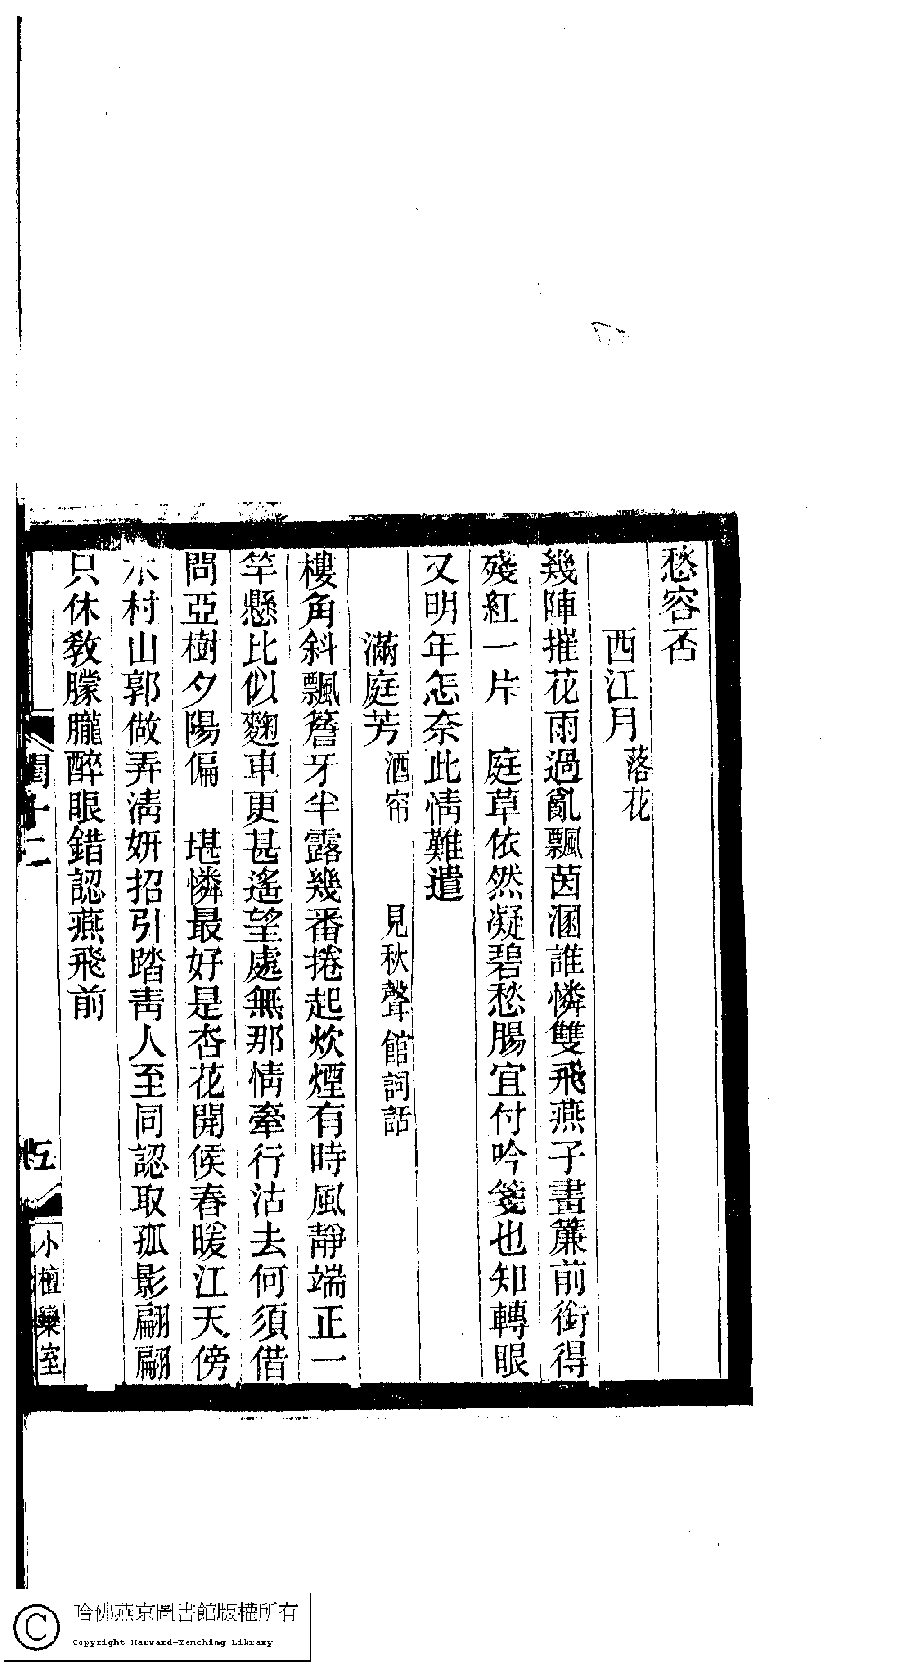 愁容否
西江月 落花
幾陣摧花雨過亂飄茵溷誰憐雙飛燕子畫簾前銜得
殘紅一片　庭草依然凝碧愁腸宜付吟箋也知轉眼
又明年怎奈此情難遣
滿庭芳 酒帘　見秋聲館詞話
樓角斜飄簷牙半露幾番捲起炊煙有時風靜端正一
竿懸比似麴車更甚遙望處無那情牽行沽去何須借
問亞樹夕陽偏　堪憐最好是杏花開候春暖江天傍
水村山郭做弄淸妍招引踏靑人至同認取孤影翩翩
只休教朦朧醉眼錯認燕飛前
閨十二
五
小檀欒室
哈佛燕京圖書館版權所有
Copyright Harvard-Yenching Library